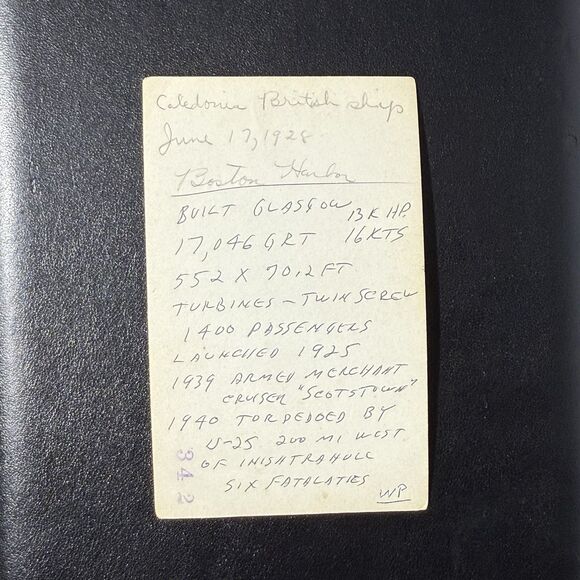 Caledonia British ship
June 17, 1928
Boston Harbor
BUILT GLASGOW 13K HP.
17,046 GRT 16 KTS
552 X 70.2 FT
TURBINES - TWIN SCREW
1400 PASSENGERS
LAUNCHED 1925
1939 ARMED MERCHANT
CRUISER "SCOTSTOWN"
1940 TORPEDOED BY
U-25 200 MI WEST
OF INISHTRAHULL
SIX FATALATIES
WP
342